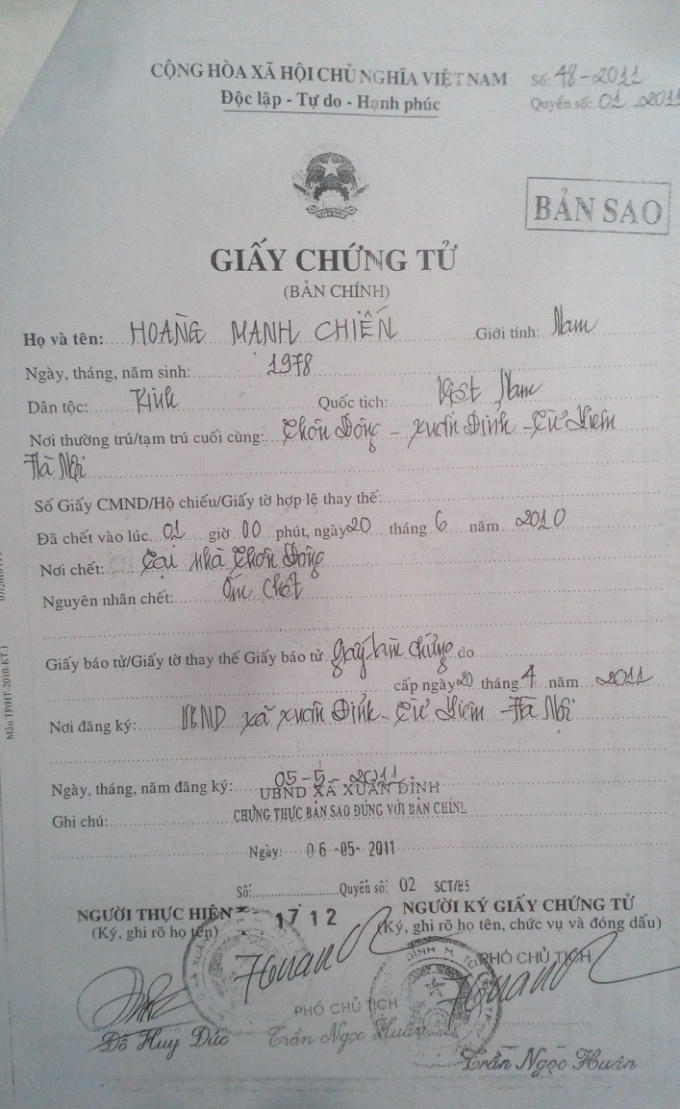 CỘNG HÒA XÃ HỘI CHỦ NGHĨA VIỆT NAM
Số: 48-2011
Độc lập - Tự do - Hạnh phúc
Quyển số: 01-2011
BẢN SAO
GIẤY CHỨNG TỬ
(BẢN CHÍNH)
Họ và tên: HOÀNG MẠNH CHIẾN Giới tính: Nam
Ngày, tháng, năm sinh: 1978
Dân tộc: Kinh Quốc tịch: Việt Nam
Nơi thường trú/tạm trú cuối cùng: Thôn Đông - Xuân Đỉnh - Từ Liêm
Hà Nội
Số Giấy CMND/Hộ chiếu/Giấy tờ hợp lệ thay thế:
Đã chết vào lúc 01 giờ 00 phút, ngày 20 tháng 6 năm 2010
Nơi chết: Tại nhà Thôn Đông
Nguyên nhân chết: Ốm chết
Giấy báo tử/Giấy tờ thay thế Giấy báo tử giấy làm chứng do
cấp ngày 20 tháng 4 năm 2011
Nơi đăng ký: UBND xã Xuân Đỉnh - Từ Liêm - Hà Nội
Ngày, tháng, năm đăng ký: 05-5-2011
UBND XÃ XUÂN ĐỈNH
Ghi chú: CHỨNG THỰC BẢN SAO ĐÚNG VỚI BẢN CHÍNH
Ngày: 06-05-2011
Số: Quyển số: 02 SCT/BS
1712
NGƯỜI THỰC HIỆN NGƯỜI KÝ GIẤY CHỨNG TỬ
(Ký, ghi rõ họ tên) (Ký, ghi rõ họ tên, chức vụ và đóng dấu)
PHÓ CHỦ TỊCH
PHÓ CHỦ TỊCH
Đỗ Huy Đức Trần Ngọc Huân
Trần Ngọc Huân
Mẫu TP/HT-2010-KT.1